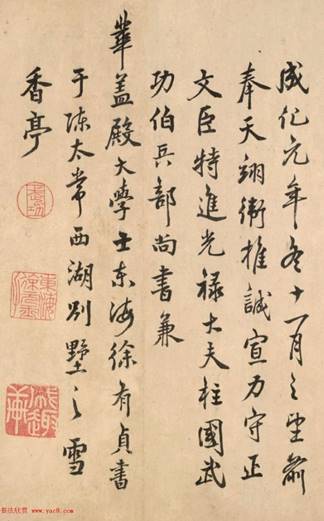 成化元年冬十一月之望前
奉天翊衛推誠宣力守正
文臣特進光禄大夫柱國武
功伯兵部尚書兼
華盖殿大學士东海徐有貞書
于陳太常西湖别墅之雪
香亭
書法欣賞 www.yac8.com